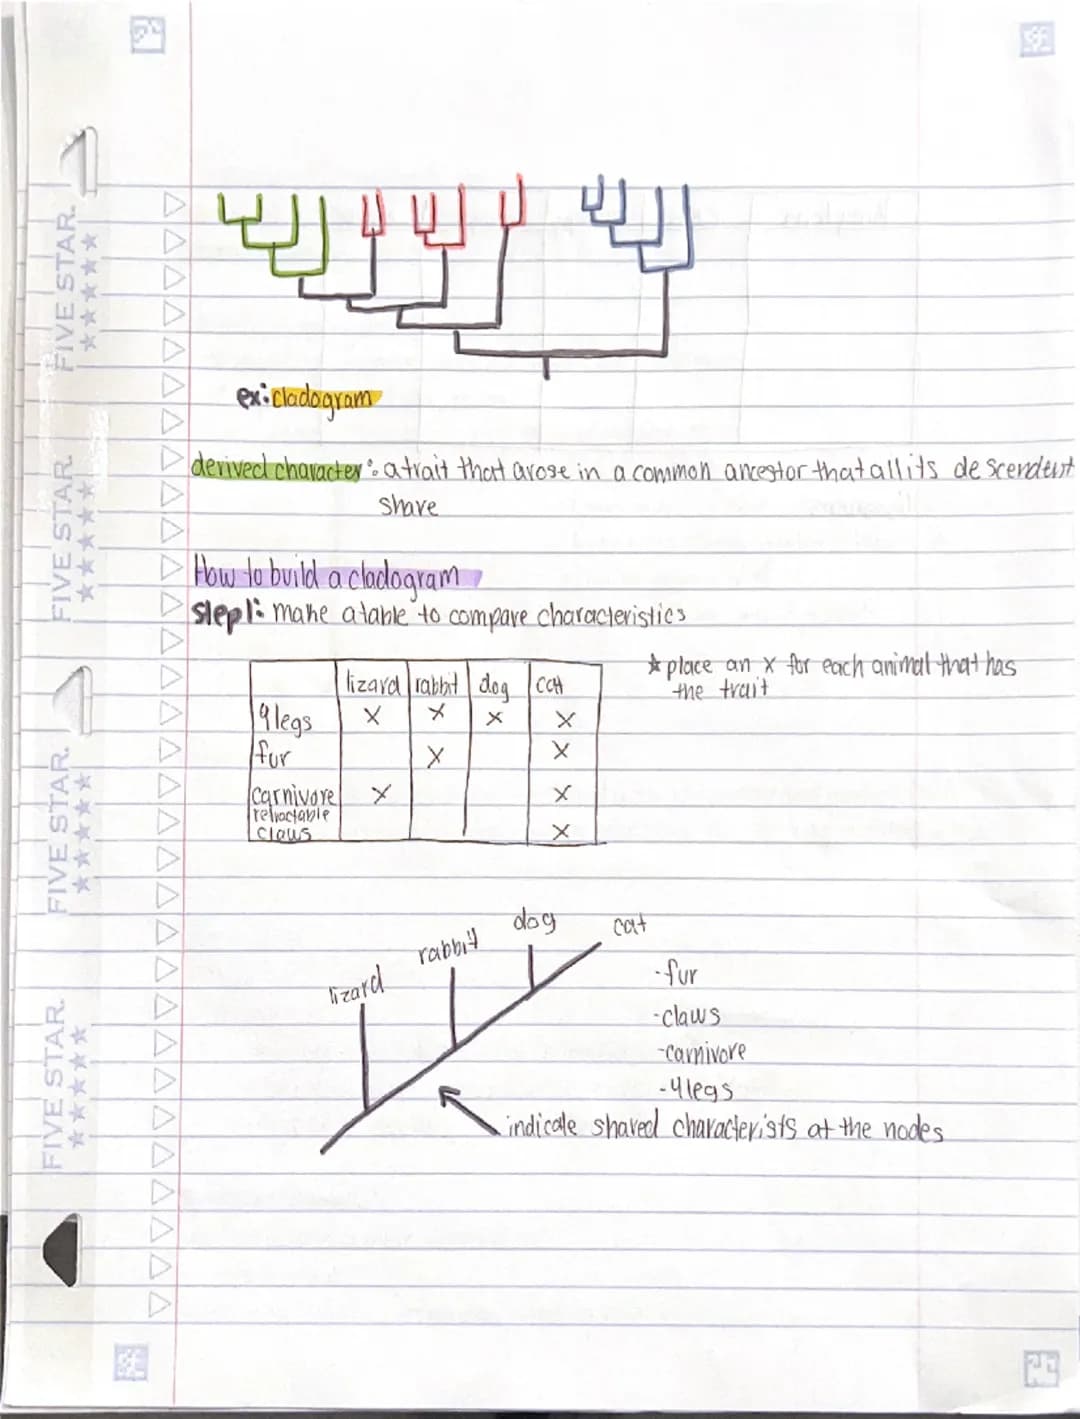 ex: cladogram
derived character: a trait that arose in a common ancestor that all its descendent
share
How to build a cladogram
step 1: make a table to compare characteristics
* place an x for each animal that has
the trait
lizard rabbit dog cat
4 legs X X X X
fur X X
carnivore X X
retractable
claws X
lizard
rabbit
dog
cat
-fur
-claws
-carnivore
-4 legs
indicate shared characterists at the nodes
FIVE STAR.
FIVE STAR.
FIVE STAR.
FIVE STAR.